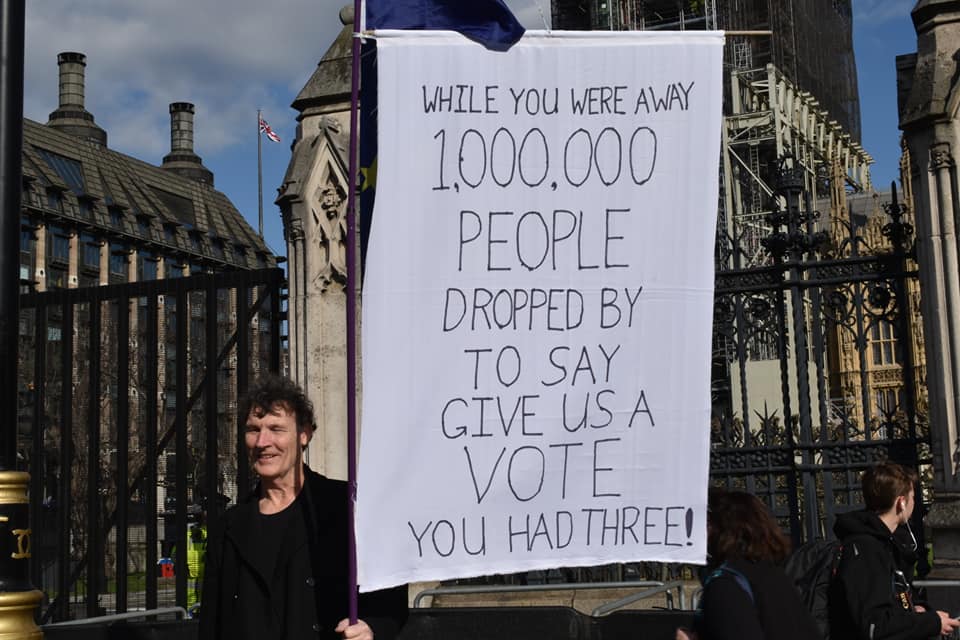 WHILE YOU WERE AWAY
1,000,000
PEOPLE
DROPPED BY
TO SAY
GIVE US A
VOTE
YOU HAD THREE!